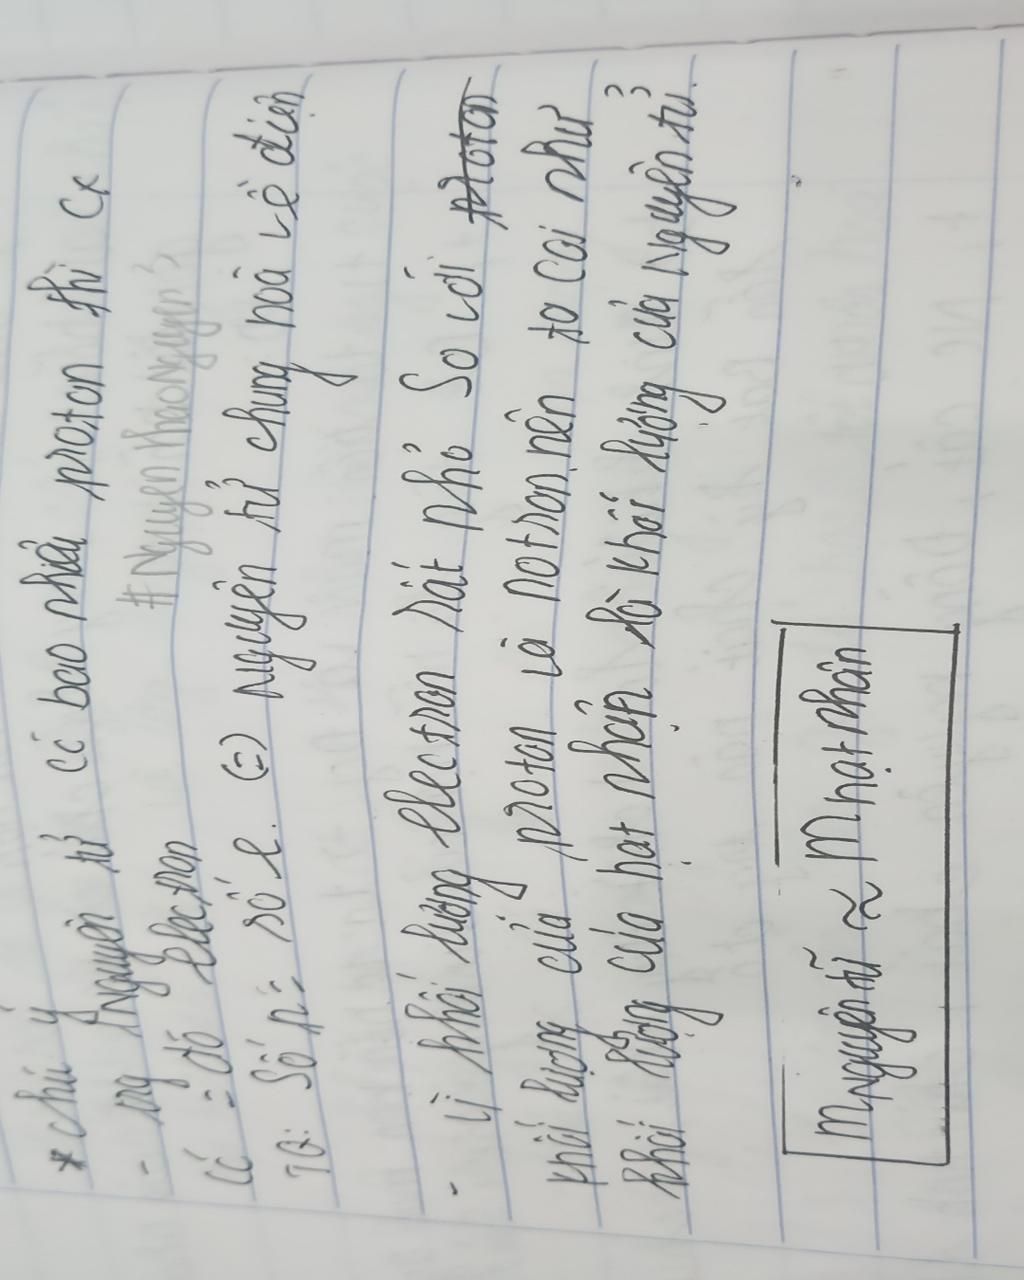 * chú ý
- 1 nguyên tử có bao nhiêu proton thì cx
#Nguyenthaonguyen3
có = đó electron
TQ: Số p = số e. (=) nguyên tử chung hoà về điện
- Vì khối lượng electron rất nhỏ So với proton
khối lượng của proton và notron nên ta coi như
khối lượng của hạt nhân là khối lượng của nguyên tử.
m nguyên tử ≈ m hạt nhân